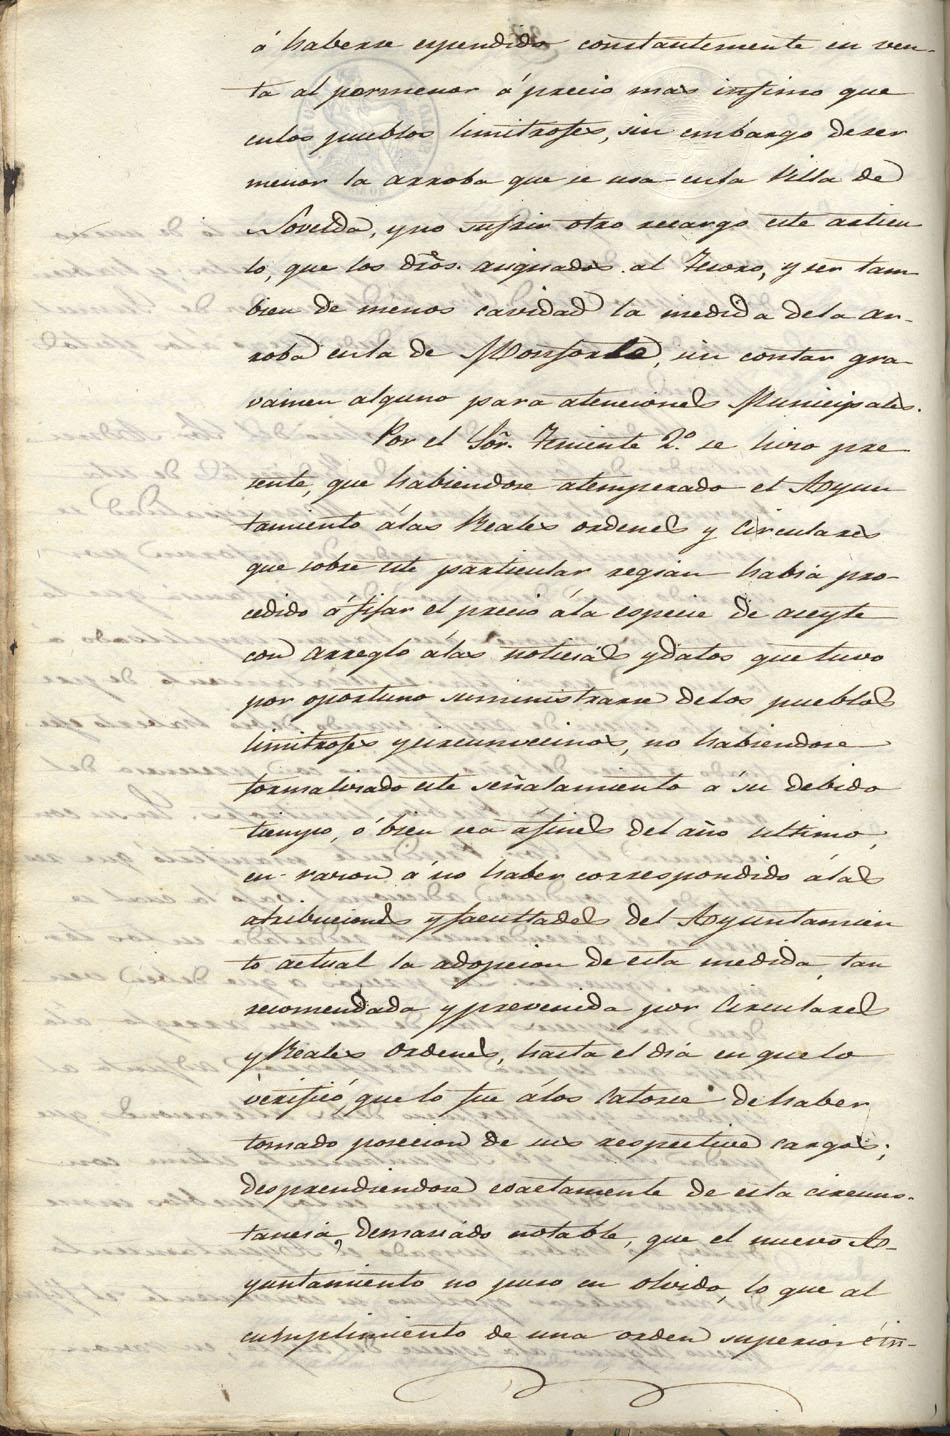 á haberse expendido constantemente en ven-
ta al pormenor á precio mas infimo que
enlos pueblos limitrofes, sin embargo deser
menor la arroba que se usa enla Villa de
Novelda, yno sufrir otro recargo este articu
lo, que los dros. asignados al Tesoro, y ser tam
bien de menos cavidad la medida dela ar-
roba enla de Monforte, sin contar gra-
vamen alguno para atenciones Municipales.
Por el Sor. Teniente 2.º se hizo pre
sente, que habiendose atemperado el Ayun
tamiento álas Reales ordenes y circulares
que sobre este particular regian habia pro-
cedido á fijar el precio ála especie de aceyte
con arreglo álas noticias ydatos que tuvo
por oportuno suministrarse delos pueblos
limitrofes ycircunvecinos, no habiendose
formalizado este señalamiento á su debido
tiempo, ó bien sea áfines del año ultimo,
en razon á no haber correspondido álas
atribuciones yfacultades del Ayuntamien
to actual la adopcion de esta medida, tan
recomendada yprevenida por Circulares
yReales Ordenes, hasta el dia en que lo
verificó, que lo fue álos catorce de haber
tomado posecion de sus respective cargos;
desprendiendose esactamente de esta circuns-
tancia, demasiado notable, que el nuevo A-
yuntamiento no puso en olvido, lo que al
cumplimiento de una orden superior é in-